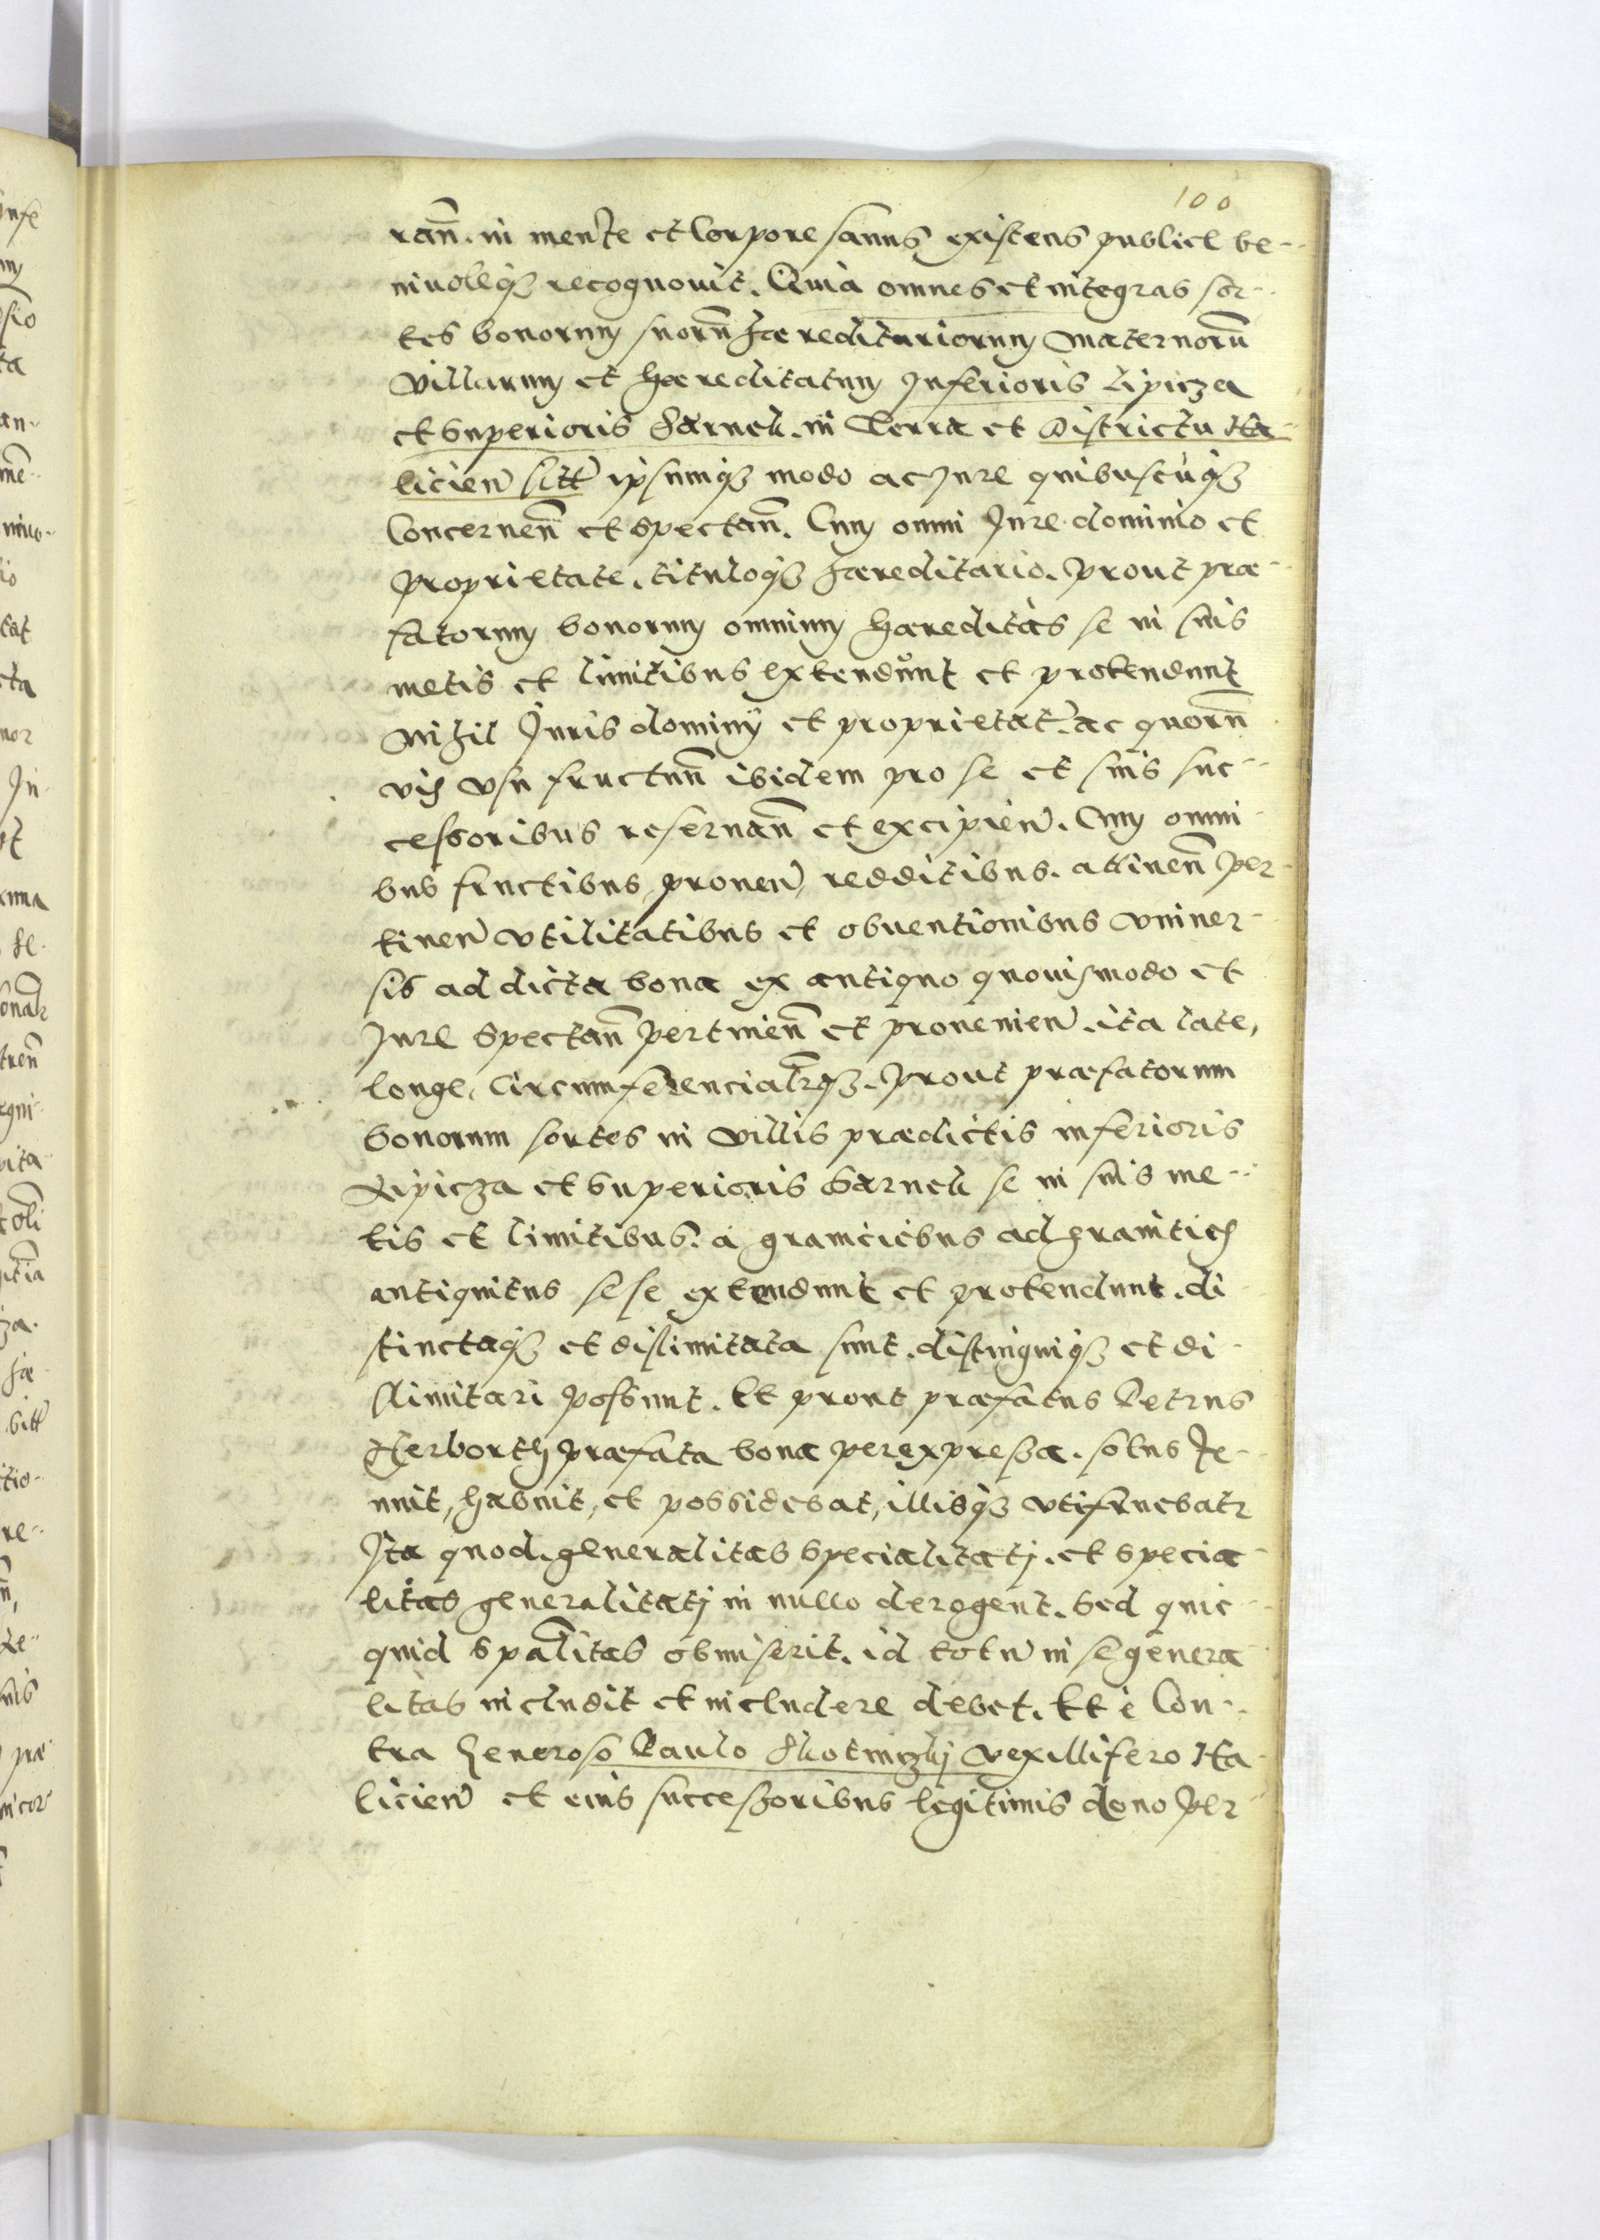 100
rañ. in mente et Corpore sanus existens publice be-
nivoleq(ue) recognovit. Quia omnes et integras sor-
tes bonorum suorũ hæreditariorum Maternorũ
Villarum et hæreditatum Inferioris Lipicza
et Superioris Sarnek. in Terra et Districtu Ha-
licien̄ sitt̄ ipsumq(ue) modo ac Jure quibuscũq(ue)
Concerneñ et Spectañ. Cum omni Jure dominio et
Proprietate. tituloq(ue) hæreditario. Prout præ-
fatorum bonorum omnium hæreditas se in suis
metis et limitibus extendunt et protendunt
Nihil Juris dominÿ et proprietat̄. ac quorũ
vis Usu fructuũ ibidem pro se et suis suc-
cessoribus reservañ et excipien̄. Cum omni-
bus fructibus, proven̄, redditibus. attineñ Per-
tinen̄ Utilitatibus et obventionibus Univer-
sis ad dicta bona ex antiquo quovismodo et
Jure Spectañ Pertineñ et provenien̄. ita late,
longe, Circumferencialrq(ue). Prout præfatorum
bonorum sortes in Villis prædictis inferioris
Lipicza et Superioris Sarnek se in suis me-
tis et limitibus. a graniciebus ad granities
antiquitus sese extendunt et protendunt. di
stinctaq(ue) et dislimitata sunt. distinguiq(ue) et di
slimitari possunt. Et prout præfatus Petrus
Herborth Præfata bona per expressa. solus te-
nuit, habuit, et possidebat, illisq(ue) utifruebatr
Ita quod. generalitas Specialitatj. et specia
litas generalitatj in nullo derogent. Sed quic-
quid spãlitas obmiserit. id totū in se genera
litas includit et includere debet. Et è Con-
tra Generoso Paulo Skotniczkj Vexillifero Ha
licien̄ et eius successoribus legitimis dono Per-